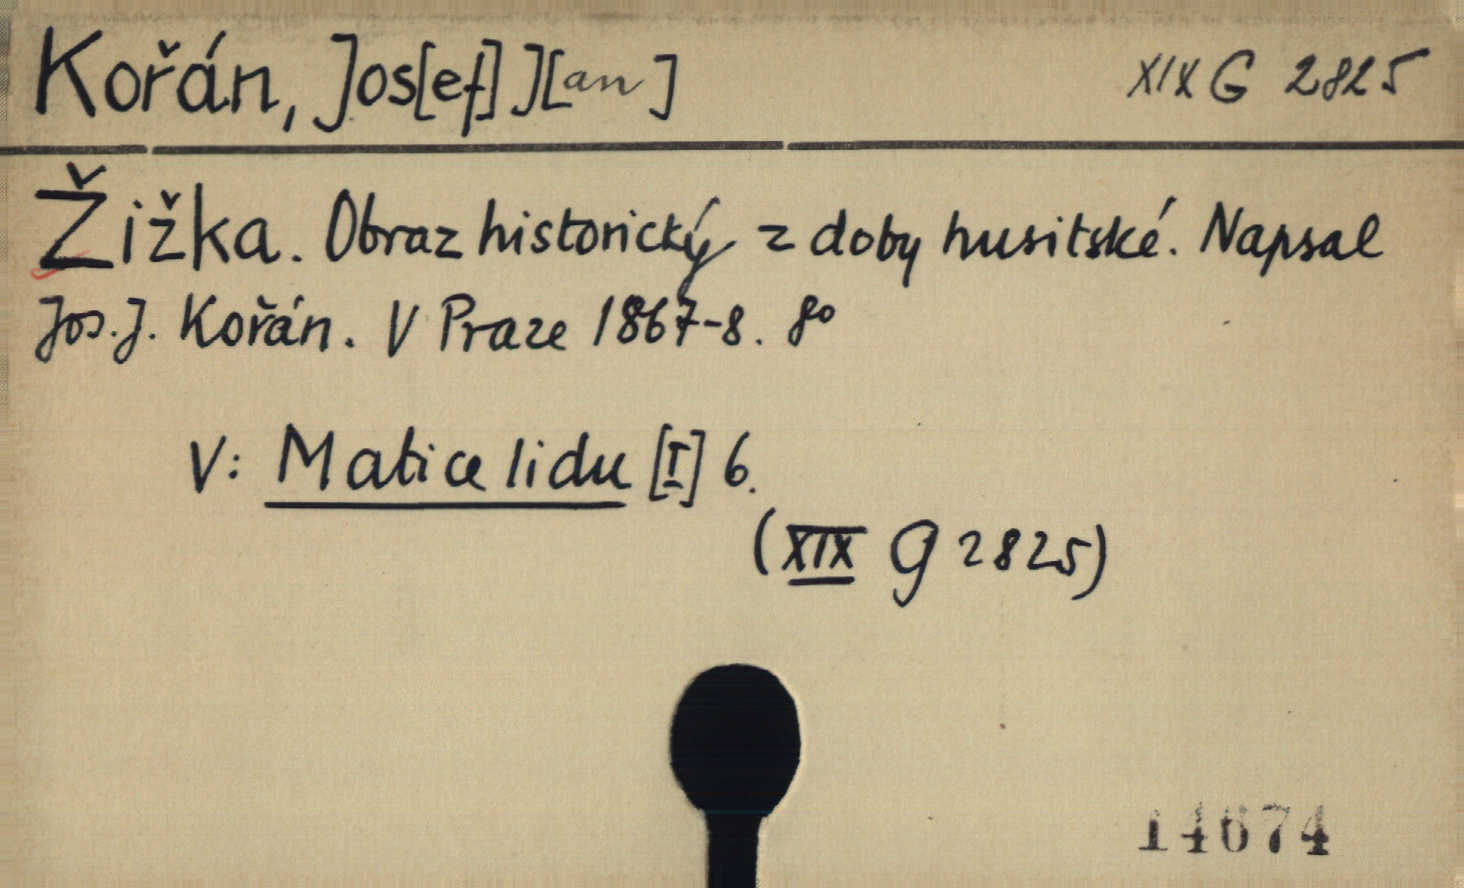 Kořán, Jos[ef] J[an] XIX G 2825
Žižka. Obraz historický z doby husitské. Napsal
Jos. J. Kořán. V Praze 1867-8. 8º
V: Matice lidu [I] 6.
(XIX G 2825)
14674